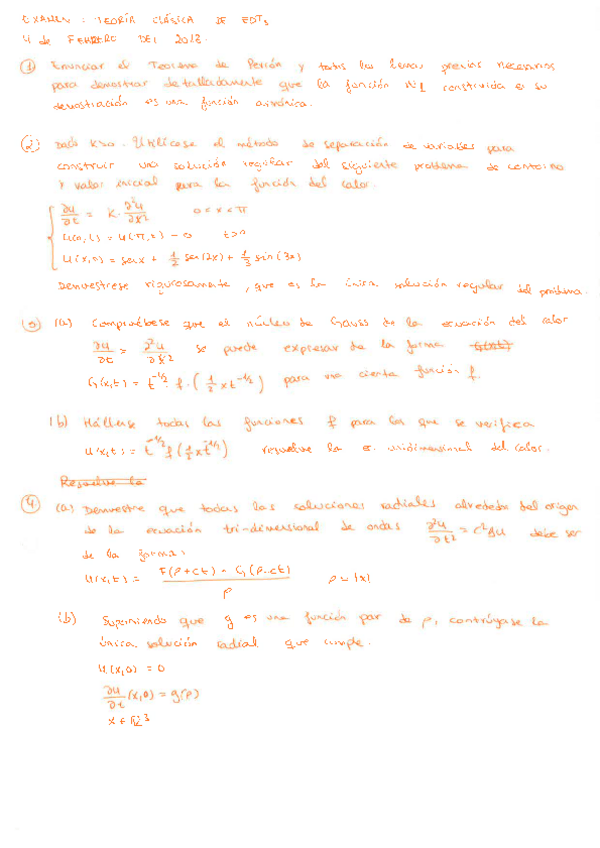 EXAMEN: TEORÍA CLÁSICA DE EDTs
4 de FEBRERO DEL 2013.
① Enunciar el Teorema de Perrón y todos los lemas previos necesarios
para demostrar detalladamente que la función construida en su
demostración es una función armónica.
② Dado k>0. Utilícese el método de separación de variables para
construir una solución regular del siguiente problema de contorno
y valor inicial para la función del calor.
∂u/∂t = k·∂²u/∂x² 0 < x < π
u(0,t) = u(π,t) = 0 t>0
u(x,0) = sen x + 1/2 sen(2x) + 1/3 sin(3x)
Demuestrese rigurosamente, que es la única solución regular del problema.
③ (a) Compruébese que el núcleo de Gauss de la ecuación del calor
∂u/∂t = ∂²u/∂x² se puede expresar de la forma
G(x,t) = t^-1/2 · f · (1/2 x t^-1/2) para una cierta función f.
(b) Hállese todas las funciones f para las que se verifica
u(x,t) = t^-1/2 f (1/2 x t^-1/2) resuelve la ec. unidimensional del calor.
Resuelve la
④ (a) Demuestre que todas las soluciones radiales alrededor del origen
de la ecuación tri-dimensional de ondas ∂²u/∂t² = c²Δu debe ser
de la forma:
u(x,t) = F(ρ+ct) + G(ρ-ct) / ρ ρ = |x|
(b) Suponiendo que g es una función par de ρ, contrúyase la
única solución radial que cumple.
u(x,0) = 0
∂u/∂t (x,0) = g(ρ)
x ∈ ℝ³